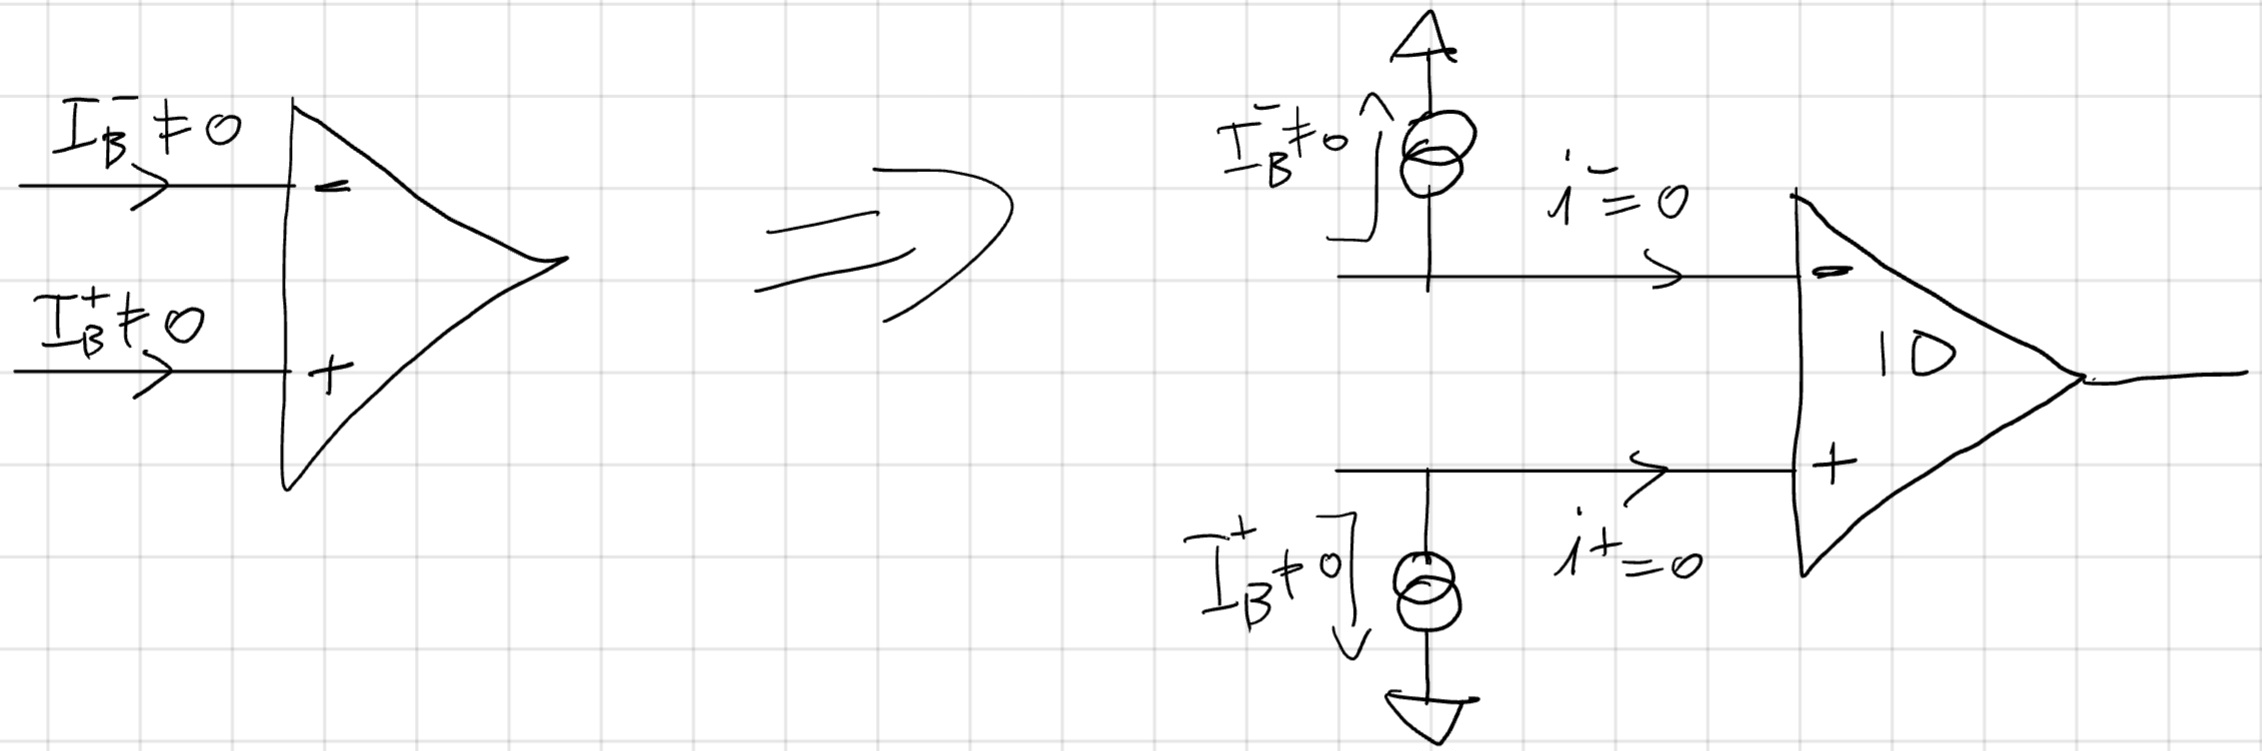 I_B^- ≠ 0
-
I_B^+ ≠ 0
+
⇒
I_B^- ≠ 0
i^- = 0
-
ID
+
I_B^+ ≠ 0
i^+ = 0